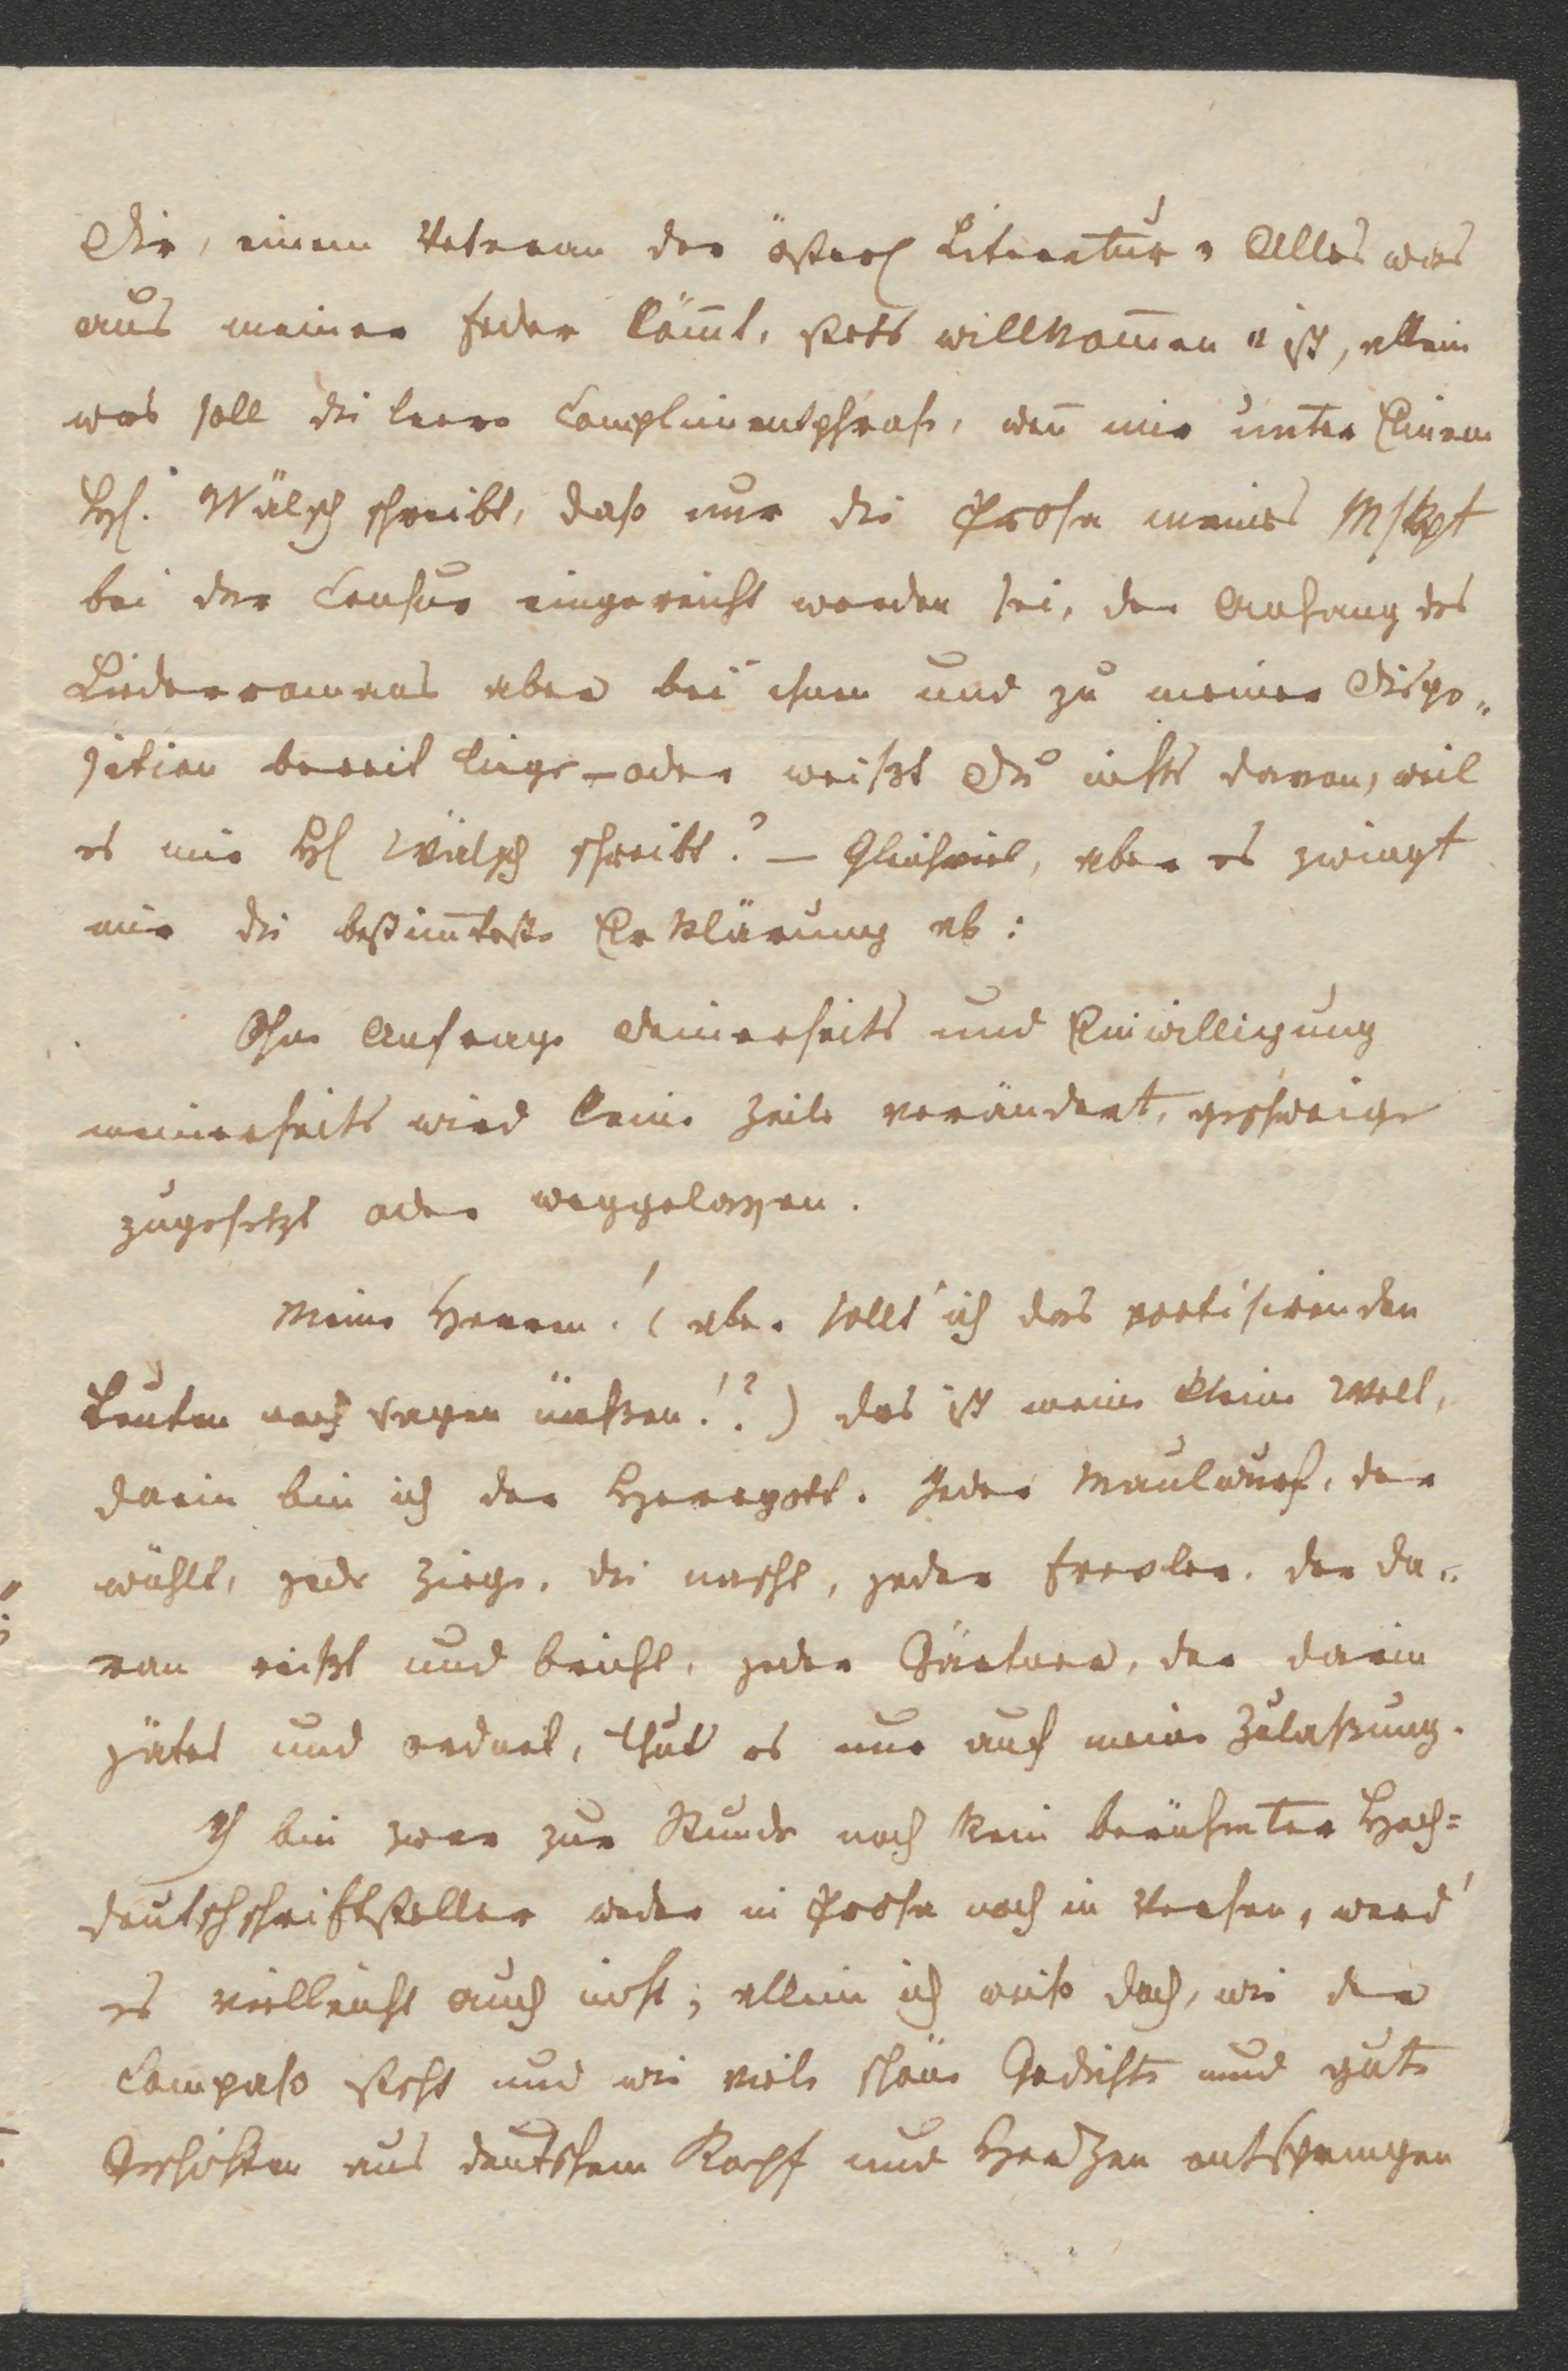 Dir, einem Veteran der österr Literatur „Alles was
aus meiner Feder kom̄t, stets willkom̄en" ist, allein
was soll die leere Complimentphrase, wen̄ mir unter Einem
Hr. Wälsch schreibt, daß nur die Prosa meines Mskpt
bei der Censur eingereicht worden sei, der Anfang des
Liederromans aber bei ihm und zu meiner Dispo„
sition bereit liege – oder weißt Du nichts davon, weil
es mir Hr Wälsch schreibt? – Gleichviel, aber es zwingt
mir die bestim̄teste Erklärung ab:
Ohne Anfrage deinerseits und Einwilligung
meinerseits wird keine Zeile verändert, geschweige
zugesetzt oder weggelassen.
Meine Herren! (aber sollt' ich das poetisirenden
Leuten noch sagen müßen!?) das ist meine kleine Welt,
darin bin ich der Herrgott. Jeder Maulwurf, der
wühlt, jede Ziege, die nascht, jeder Frevler, der da„
ran reißt und bricht, jeder Gärtner, der darin
jätet und ordnet, thut es nur auf meine Zulaßung.
Ich bin zwar zur Stunde noch kein berühmter Hoch=
deutschschriftsteller weder in Prosa noch in Versen, werd'
es vielleicht auch nicht; allein ich weiß doch, wie der
Compaß steht und wie viele schöne Gedichte und gute
Geschichten aus deutschem Kopf und Herzen entspringen